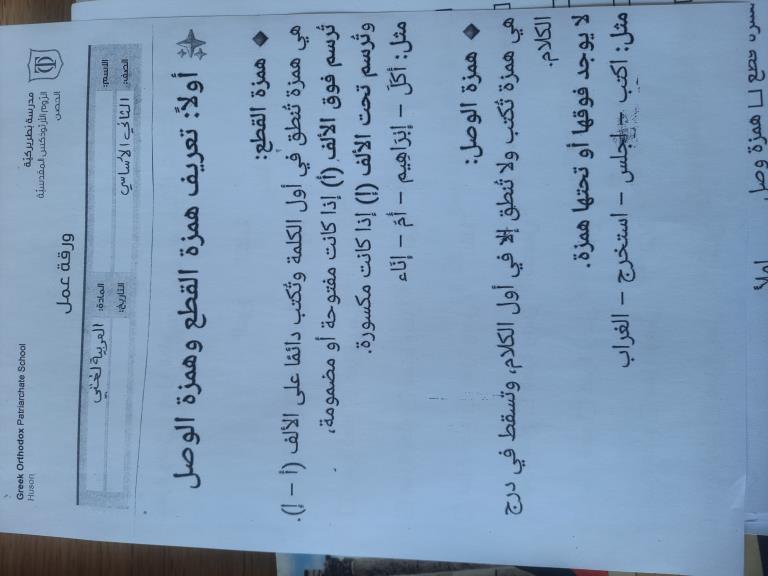 Greek Orthodox Patriarchate School
Huson
مدرسة بطريركيّة
الرّوم الأرثوذكس المقدسيّة
الحصن
ورقة عمل
الاسم:
المادة: العربية لغتي
الصف: الثاني الأساسي
التاريخ:
أولاً: تعريف همزة القطع وهمزة الوصل
◆ همزة القطع:
هي همزة تُنطق في أول الكلمة وتُكتب دائمًا على الألف (أ – إ).
تُرسم فوق الألف (أ) إذا كانت مفتوحة أو مضمومة،
وتُرسم تحت الألف (إ) إذا كانت مكسورة.
مثل: أكَلَ – إبْرَاهِيم – أمّ – إنَاء
◆ همزة الوصل:
هي همزة تُكتب ولا تُنطق إلا في أول الكلام، وتسقط في درج
الكلام.
لا يوجد فوقها أو تحتها همزة.
مثل: اكتب – اجلس – استخرج – الغراب
همزة وصل